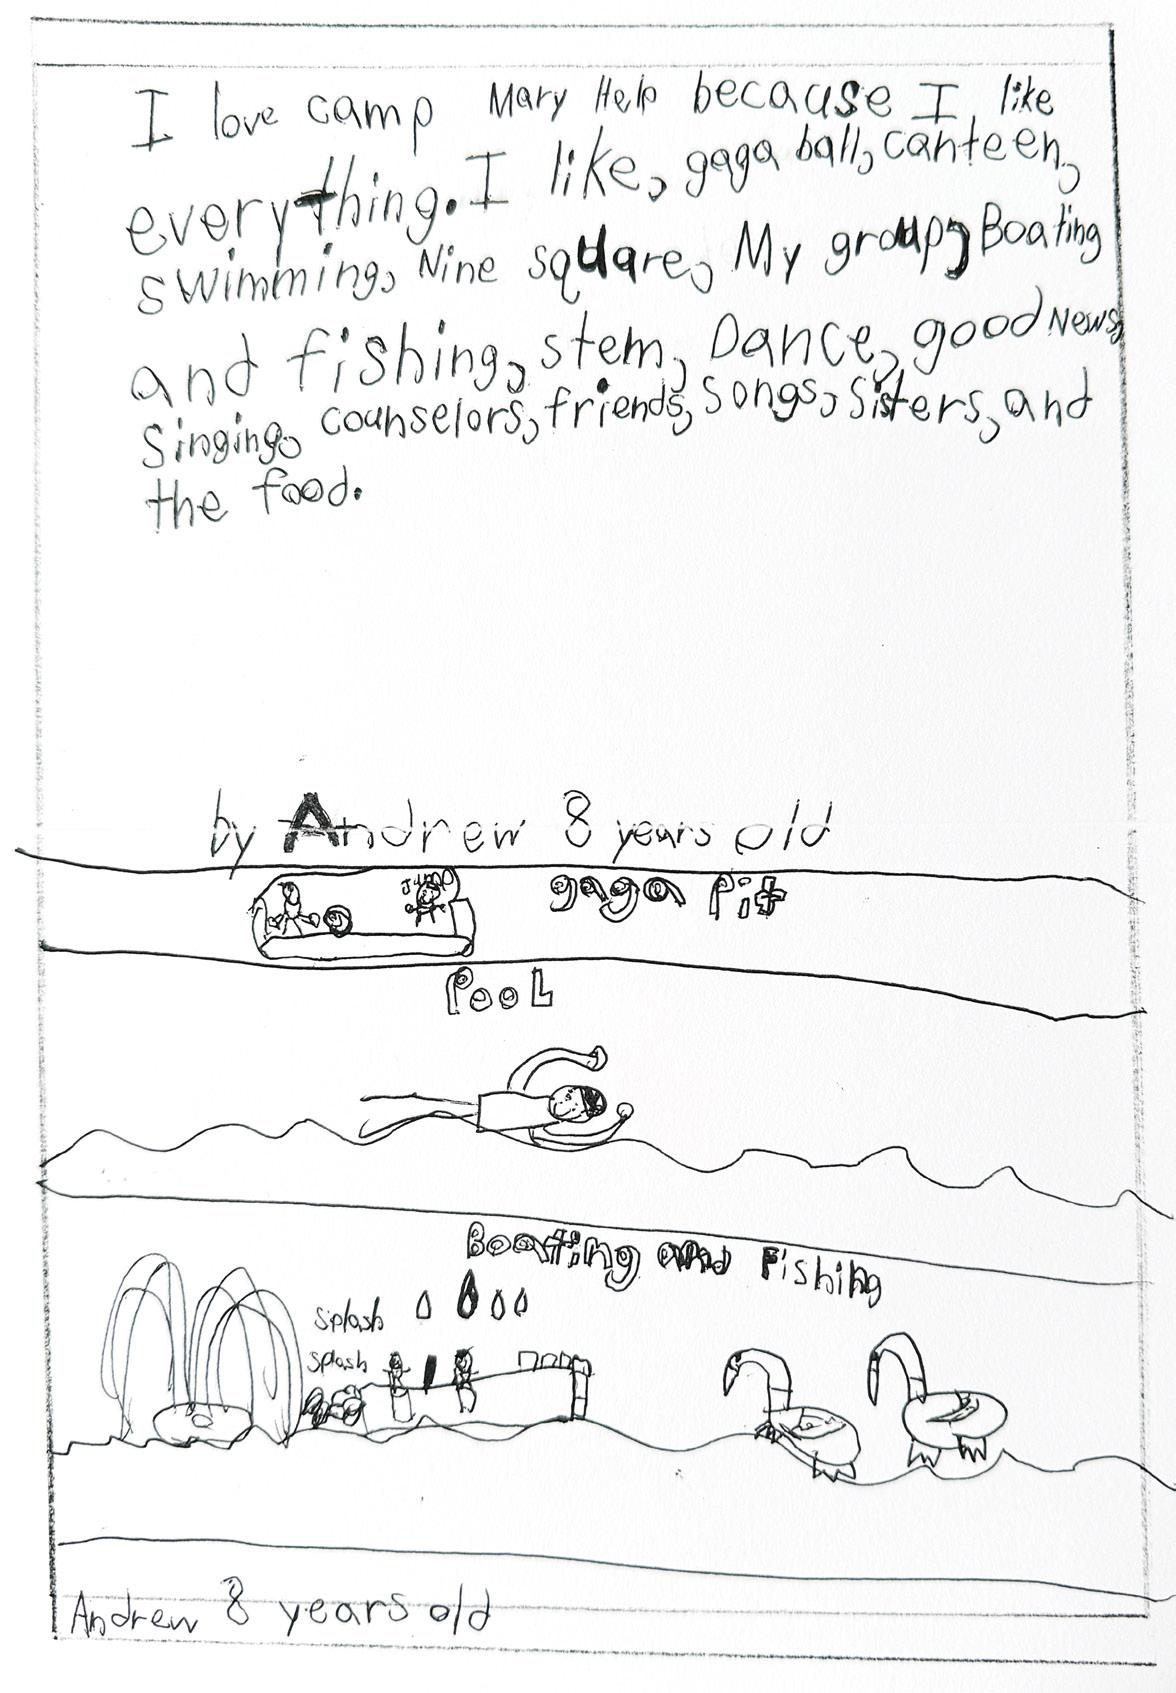 I love camp Mary Help because I like
everything. I like, gaga ball, canteen,
swimming, Nine square, My group, Boating
and fishing, stem, Dance, good News,
Singing, counselors, friends, songs, Sisters, and
the food.
by Andrew 8 years old
Jump
gaga Pit
PooL
Boating and Fishing
splash
splash
Andrew 8 years old